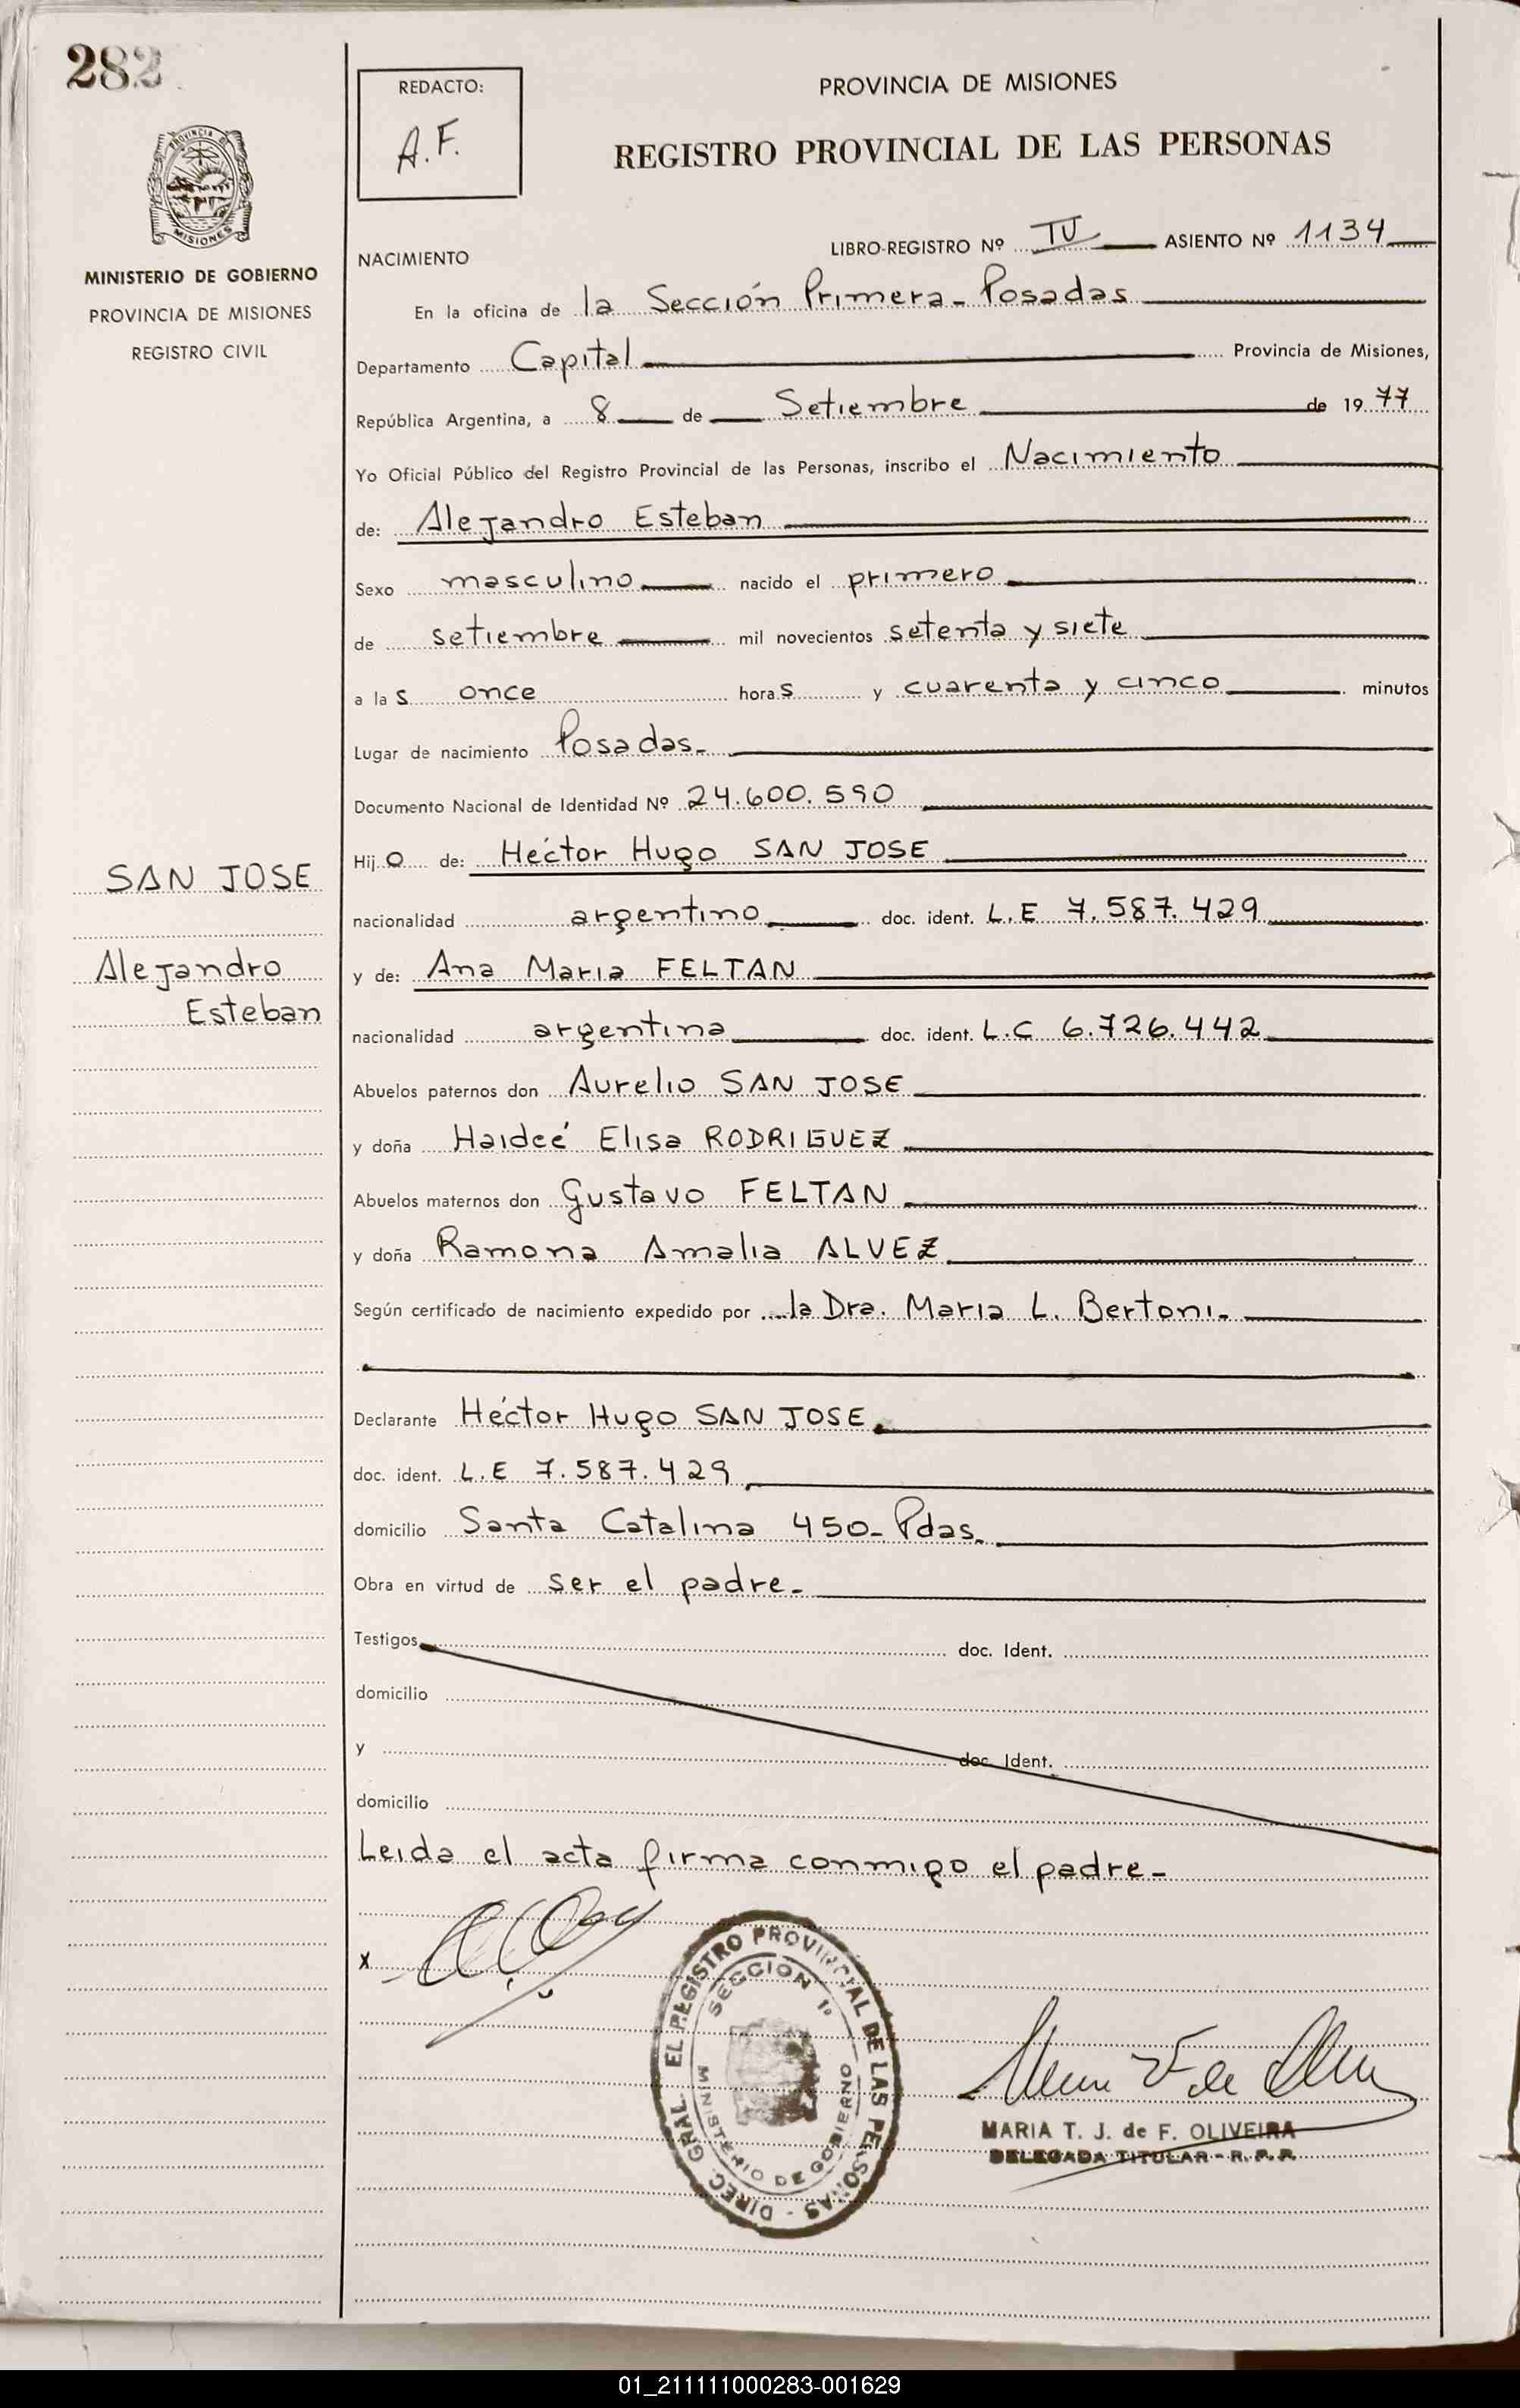 282
REDACTO:
A.F.
PROVINCIA DE MISIONES
REGISTRO PROVINCIAL DE LAS PERSONAS
PROVINCIA DE
MISIONES
MINISTERIO DE GOBIERNO
PROVINCIA DE MISIONES
REGISTRO CIVIL
LIBRO-REGISTRO Nº IV ASIENTO Nº 1134
NACIMIENTO
En la oficina de la Sección Primera - Posadas
Departamento Capital Provincia de Misiones,
República Argentina, a 8 de Setiembre de 1977
Yo Oficial Público del Registro Provincial de las Personas, inscribo el Nacimiento
de: Alejandro Esteban
Sexo masculino nacido el primero
de setiembre mil novecientos setenta y siete
a las once horas y cuarenta y cinco minutos
Lugar de nacimiento Posadas.-
Documento Nacional de Identidad Nº 24.600.590
Hijo de: Héctor Hugo SAN JOSE
SAN JOSE
nacionalidad argentino doc. ident. L.E 7.587.429
Alejandro
Esteban
y de: Ana Maria FELTAN
nacionalidad argentina doc. ident. L.C 6.726.442
Abuelos paternos don Aurelio SAN JOSE
y doña Haideé Elisa RODRIGUEZ
Abuelos maternos don Gustavo FELTAN
y doña Ramona Amalia ALVEZ
Según certificado de nacimiento expedido por la Dra. Maria L. Bertoni.-
Declarante Héctor Hugo SAN JOSE.
doc. ident. L.E 7.587.429
domicilio Santa Catalina 450- Pdas.
Obra en virtud de ser el padre-
Testigos doc. Ident.
domicilio
y doc. Ident.
domicilio
Leida el acta firma conmigo el padre-
x
DIREC. GRAL. EL REGISTRO PROVINCIAL DE LAS PERSONAS -
SECCION 1º
MINISTERIO DE GOBIERNO
MARIA T. J. de F. OLIVEIRA
DELEGADA TITULAR - R. P. P.
01_211111000283-001629